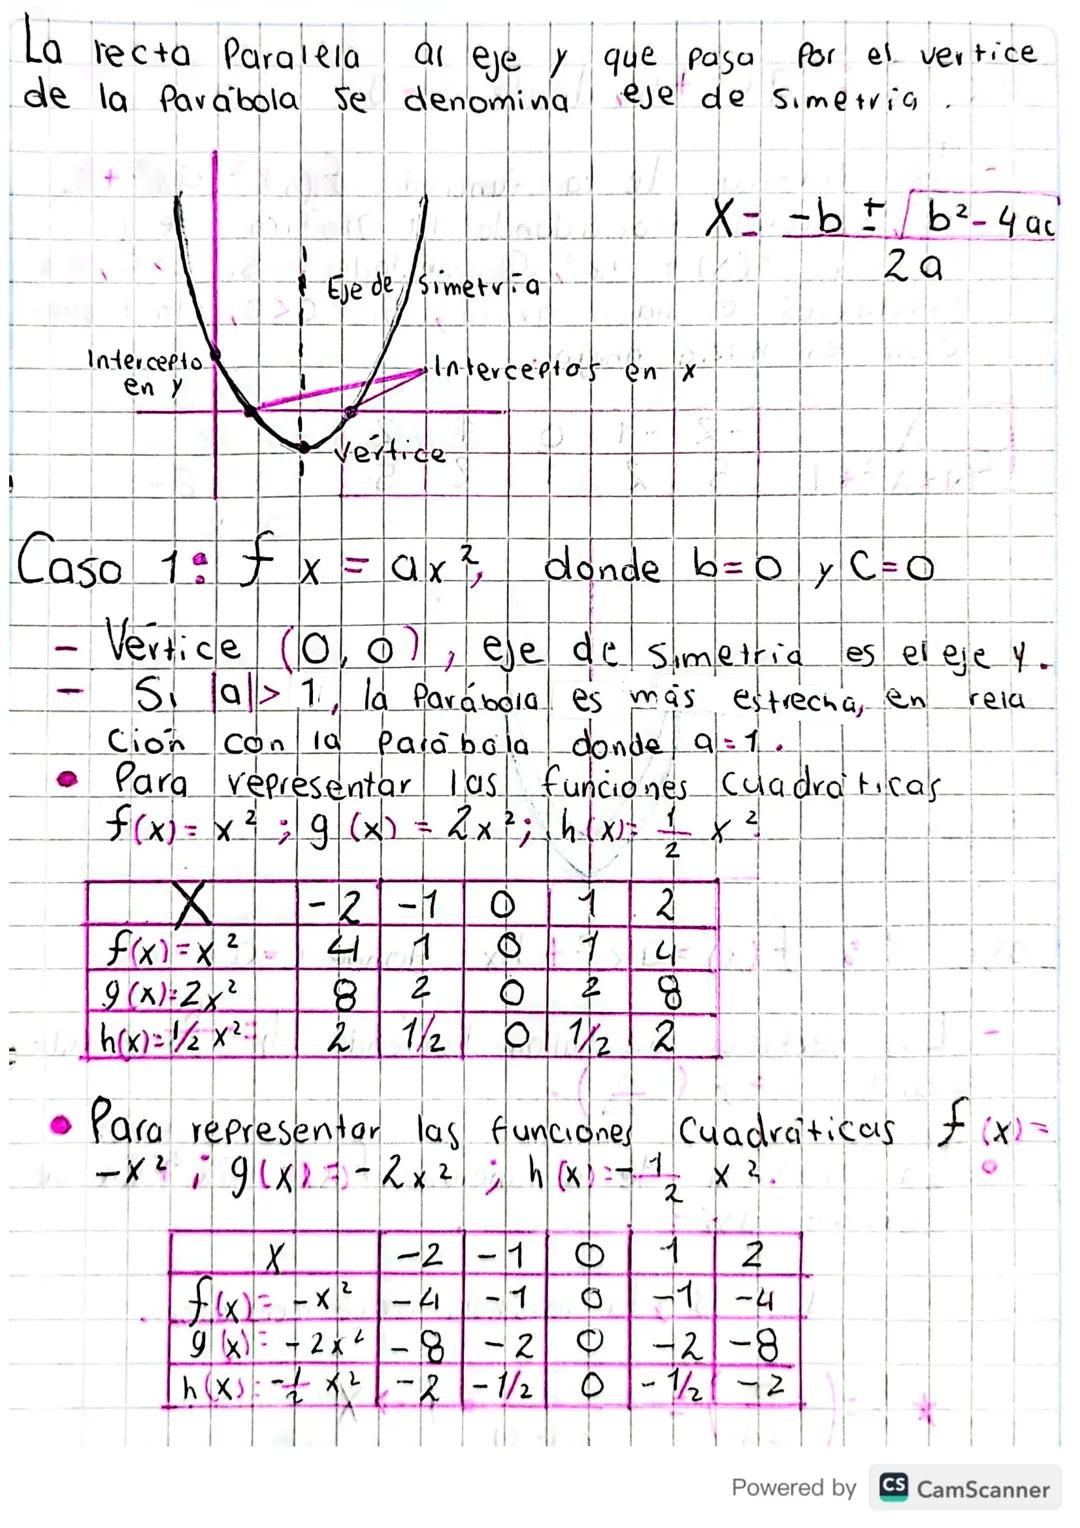 La recta Paralela al eje y que pasa por el vertice
de la Parábola se denomina eje de simetria.
X= -b ± √b²-4ac
2a
Eje de simetría
Intercepto
en y
Interceptos en x
Vértice
Caso 1: f x = ax², donde b=0 y C=0
- Vértice (0,0), eje de simetria es el eje y.
- Si |a|> 1, la Parábola es más estrecha, en rela
ción con la parábola donde a=1.
• Para representar las funciones cuadráticas
f(x)= x² ; g(x) = 2x²; h(x)= 1/2 x²
X -2 -1 0 1 2
f(x)=x² 4 1 0 1 4
g(x)=2x² 8 2 0 2 8
h(x)=1/2 x²= 2 1/2 0 1/2 2
• Para representar las funciones Cuadráticas f(x)=
-x² ; g(x)=-2x² ; h(x)=-1/2 x².
X -2 -1 0 1 2
f(x)= -x² -4 -1 0 -1 -4
g(x)= -2x² -8 -2 0 -2 -8
h(x)=-1/2 x² -2 -1/2 0 -1/2 -2
Powered by CS CamScanner